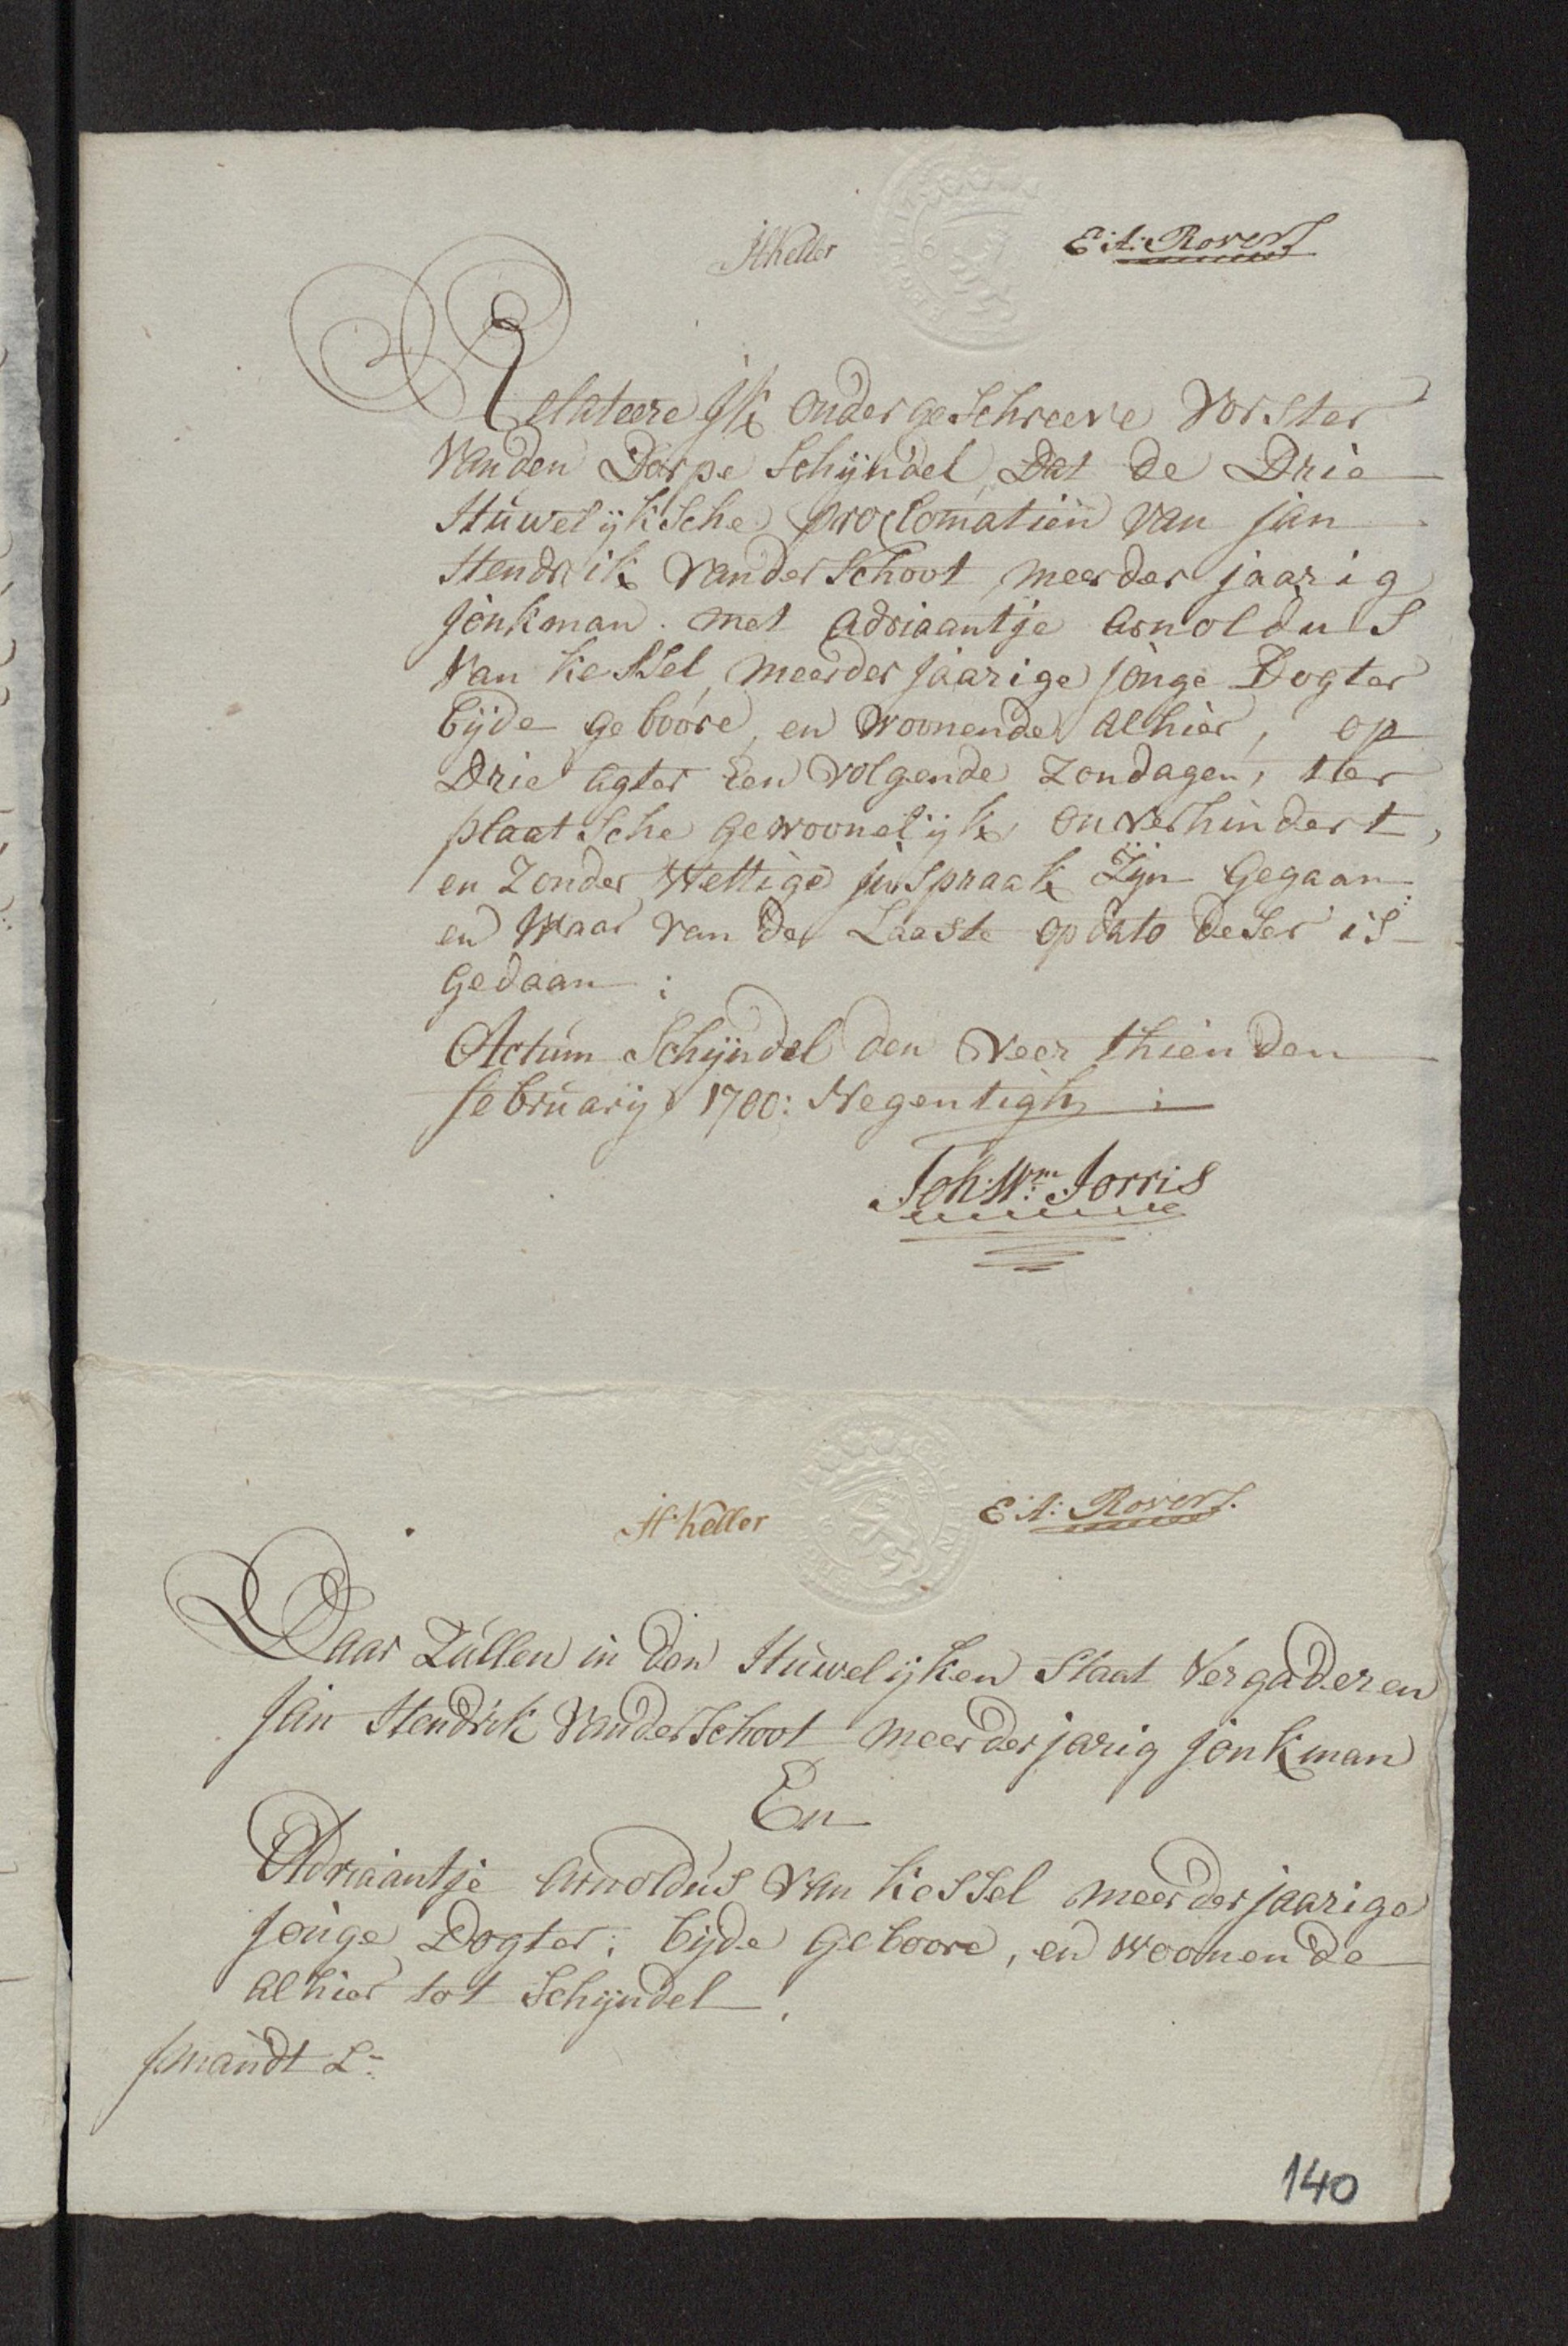 HKeller
E: A: Rovers
Relateere Jk ondergeschreeve Vorster
van den Dorpe Schijndel, Dat de Drie
Huwelijksche proclomatien van jan
Hendrik vander Schoot meerder jaarig
jonkman. met adriaantje arnoldus
van kessel, meerder jaarige jonge Dogter
bijde geboore, en woonende alhier, op
Drie agter een volgende zondagen, ter
plaatsche gewoonelijk onverhindert,
en zonder Wettige jnspraak Zijn gegaan
en waar van de Laaste op dato deser is
gedaan:
Actum Schijndel den veerthienden
february 1700: Negentigh:
Joh: Wm: Jorris
H Keller
E: A: Rovers.
Daar Zullen in den Huwelijken Staat vergaderen
Jan Hendrik vander Schoot meerderjarig jonkman
En
Adriaantje arnoldus van kessel meerderjaarige
jonge Dogter, bijde geboore, en woonende
alhier tot Schijndel.
140